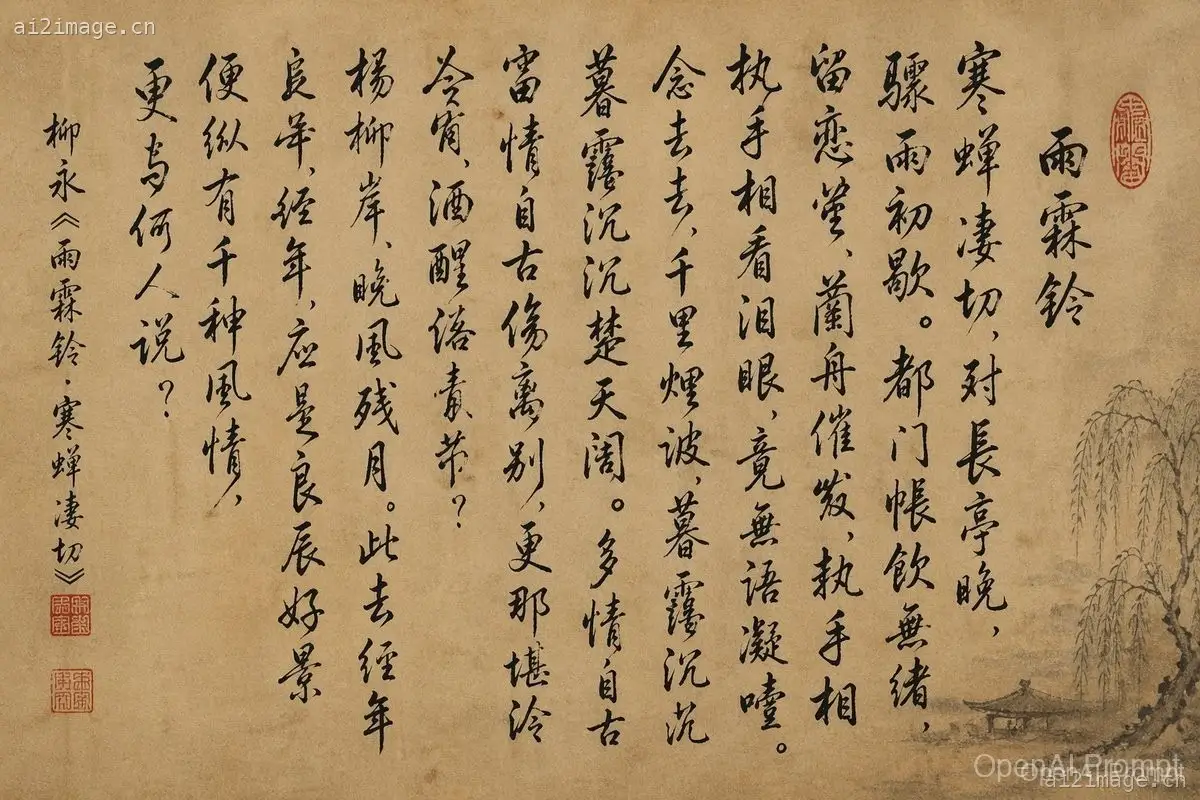 雨霖铃
寒蝉凄切，对長亭晚，
骤雨初歇。都门帐飲無绪，
留恋，蘭舟催发，執手相
执手相看泪眼，竟無語凝噎。
念去去，千里烟波，暮靄沉沉
暮靄沉沉楚天阔。多情自古
情自古傷离别，更那堪冷
今宵，酒醒？
楊柳岸、晚風残月。此去经年
年，经年，应是良辰好景
便纵有千种風情，
更与何人说？
柳永《雨霖铃·寒蝉凄切》
ai2image.cn
OpenAI Prompt
ai2image.cn